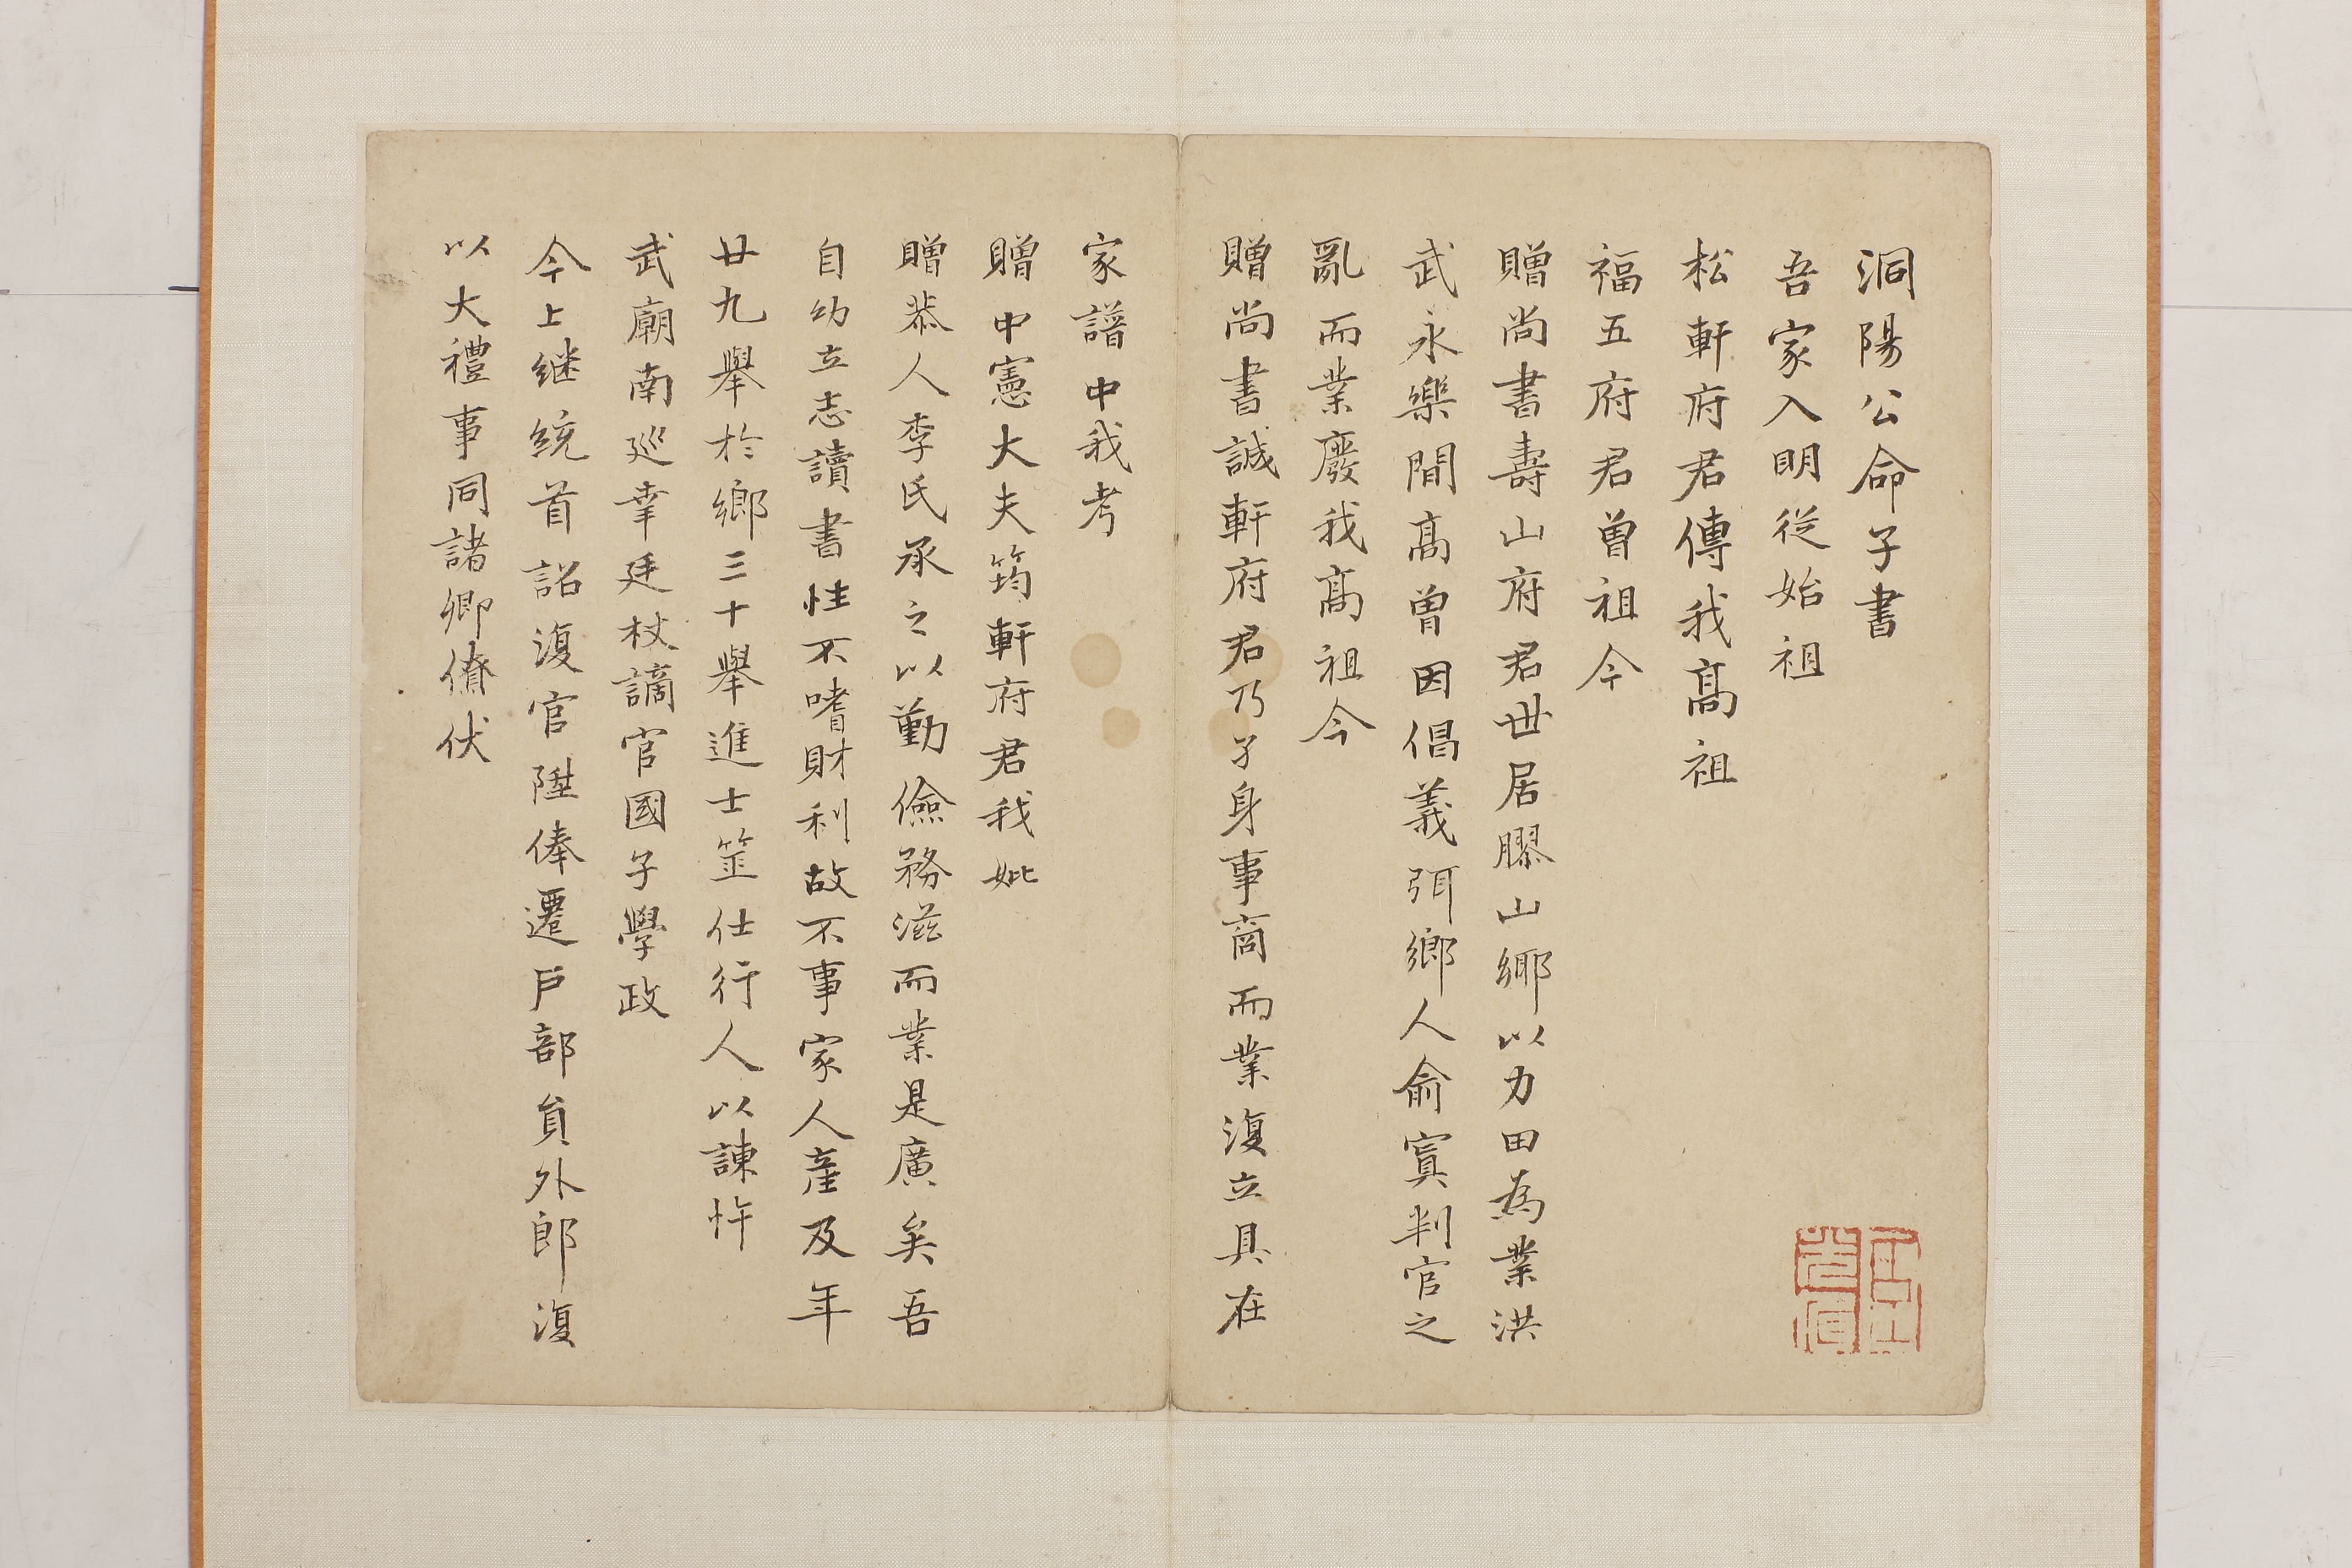 洞陽公命子書
吾家入明從始祖
松軒府君傳我髙祖
福五府君曽祖今
贈尚書壽山府君世居膠山鄉以力田為業洪
武永樂間髙曽因倡義弭鄉人俞寘判官之
亂而業廢我髙祖今
贈尚書誠軒府君乃孑身事商而業復立具在
家譜中我考
贈中憲大夫筠軒府君我妣
贈恭人李氏承之以勤儉務滋而業是廣矣吾
自幼立志讀書性不嗜財利故不事家人產及年
廿九舉於鄉三十舉進士筮仕行人以諫忤
武廟南巡幸廷杖謫官國子學政
今上継統首詔復官陞俸遷戶部員外郎復
以大禮事同諸卿僚伏